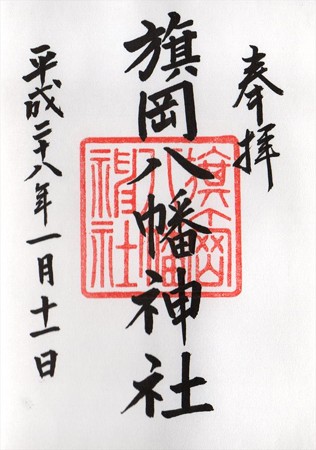 奉拝
旗岡八幡神社
旗岡八幡神社
平成二十八年一月十一日